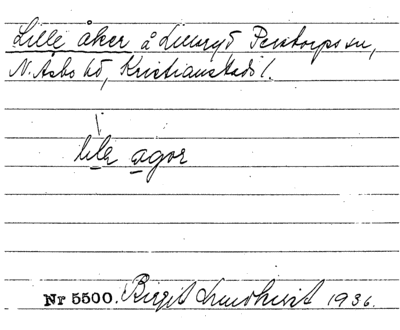 Lille åker å Lillaryd Perstorps sn,
N. Åsbo hd, Kristianstads l.
lila agor
Nr 5500. Birgit Lundkvist 1936.